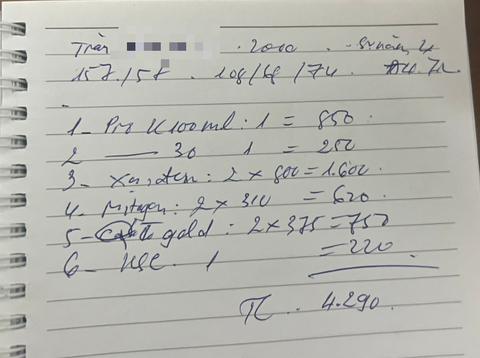 Trần 2000
157/58 . 108/68/74
1- Pro K100ml : 1 = 850
2 —— 30 1 = 250
3- : 2 x 800 = 1.600
4- Mitagen : 2 x 310 = 620
5- gold : 2 x 375 = 750
6- KSC . 1 = 220
4.290